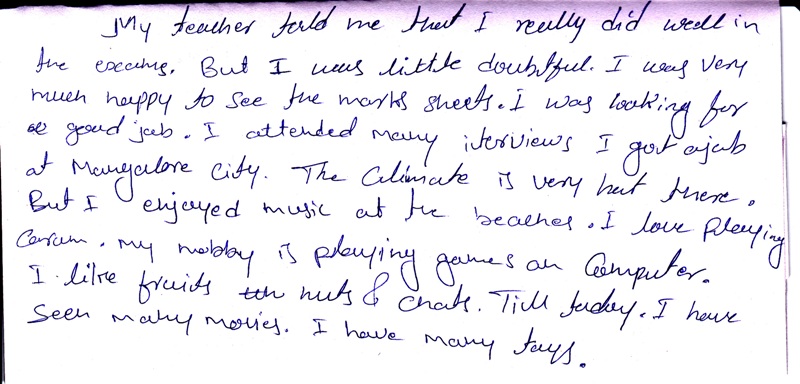 My teacher told me that I really did well in
the exams. But I was little doubtful. I was very
much happy to see the marks sheets. I was looking for
good job. I attended many interviews I got a job
at Mangalore city. The Climate is very hot there.
But I enjoyed music at the beaches. I love playing
Carum. My hobby is playing games on Computer.
I like fruits nuts & chats. Till today. I have
Seen many movies. I have many toys.